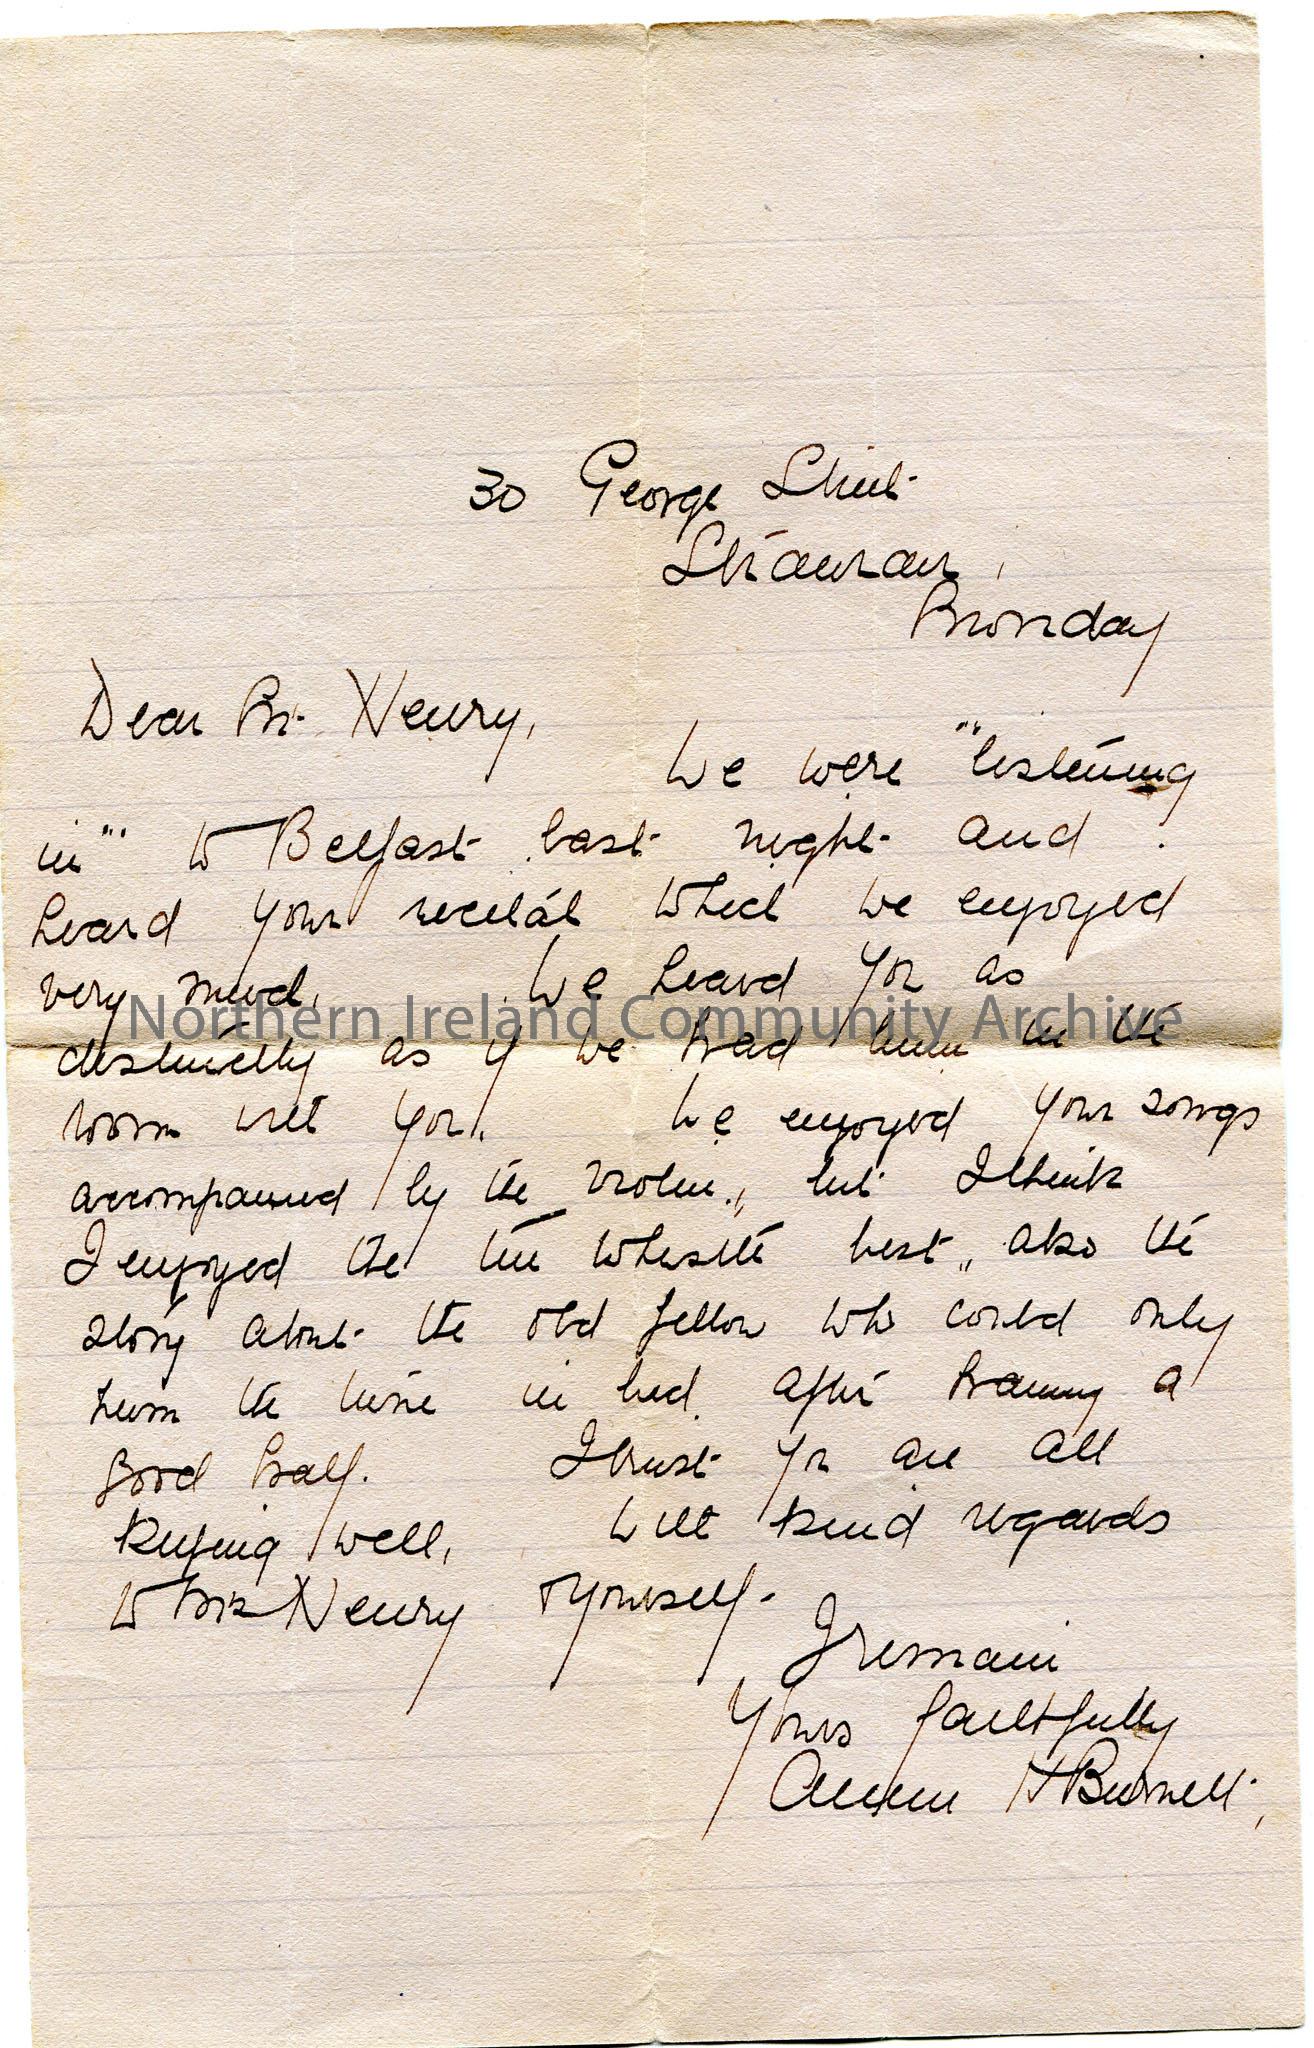 30 George Street
Stranraer,
Monday
Dear Mr. Henry,
We were "listening
in" to Belfast last night and
heard your recital which we enjoyed
very much. We heard you as
Northern Ireland Community Archive
distinctly as if we had been in the
room with you. We enjoyed your songs
accompanied by the violin, but I think
I enjoyed the tin whistle best, also the
story about the old fellow who could only
hum the tune in bed after having a
good half. I trust you are all
keeping well,
With kind regards
to Mrs Henry & yourself.
I remain
Yours faithfully
H Burnett,